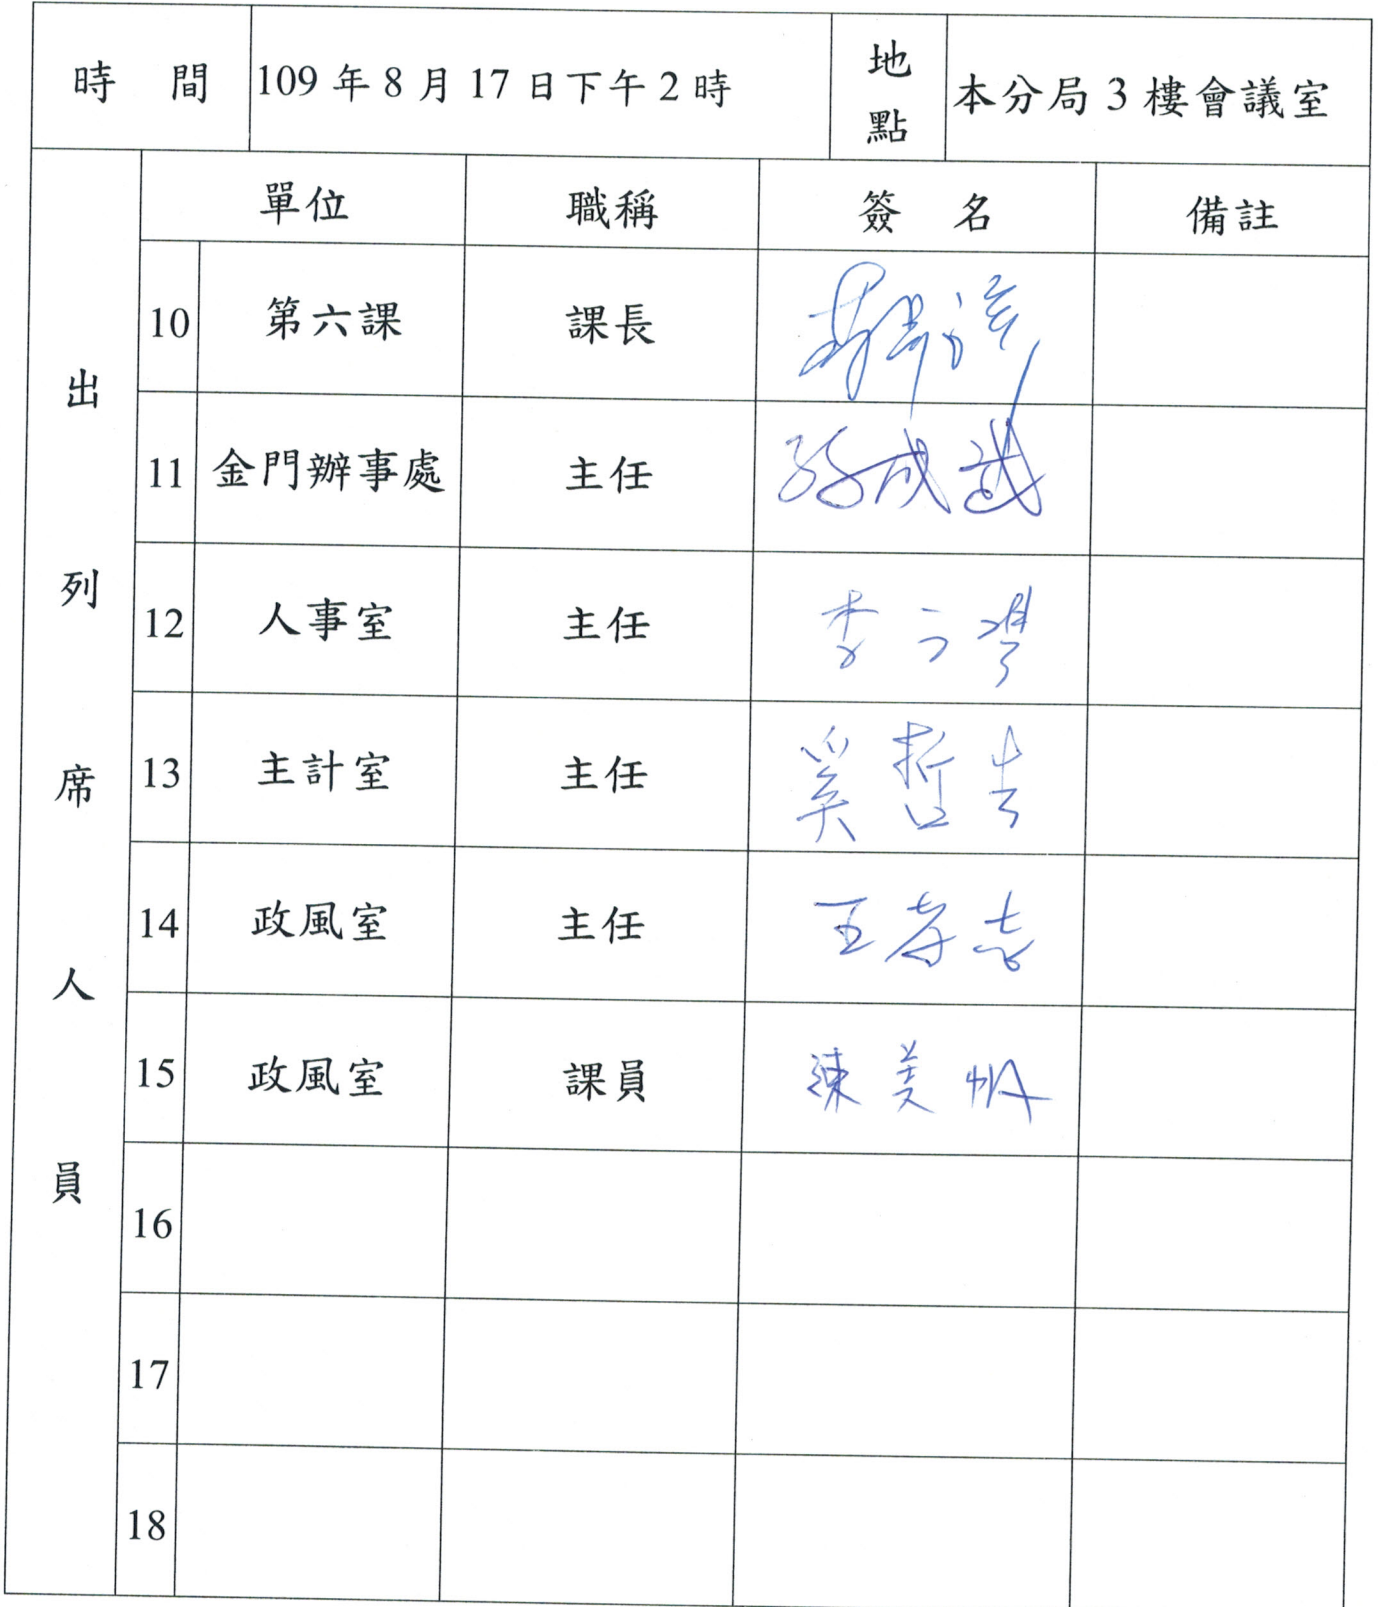 時 間 109 年 8 月 17 日下午 2 時 地點 本分局 3 樓會議室
出列席人員
單位 職稱 簽 名 備註
10 第六課 課長
11 金門辦事處 主任
12 人事室 主任 李
13 主計室 主任 奚哲
14 政風室 主任 王孝志
15 政風室 課員 陳美帆
16
17
18